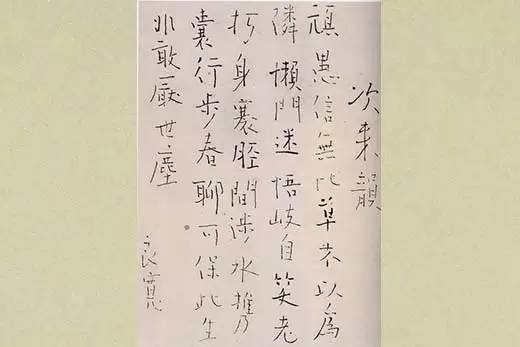 次来韻
頑愚信無比草木以為
隣懶問迷悟岐自笑老
朽身褰脛間渉水携
嚢行歩春聊可保此生
非敢厭世塵
良寛